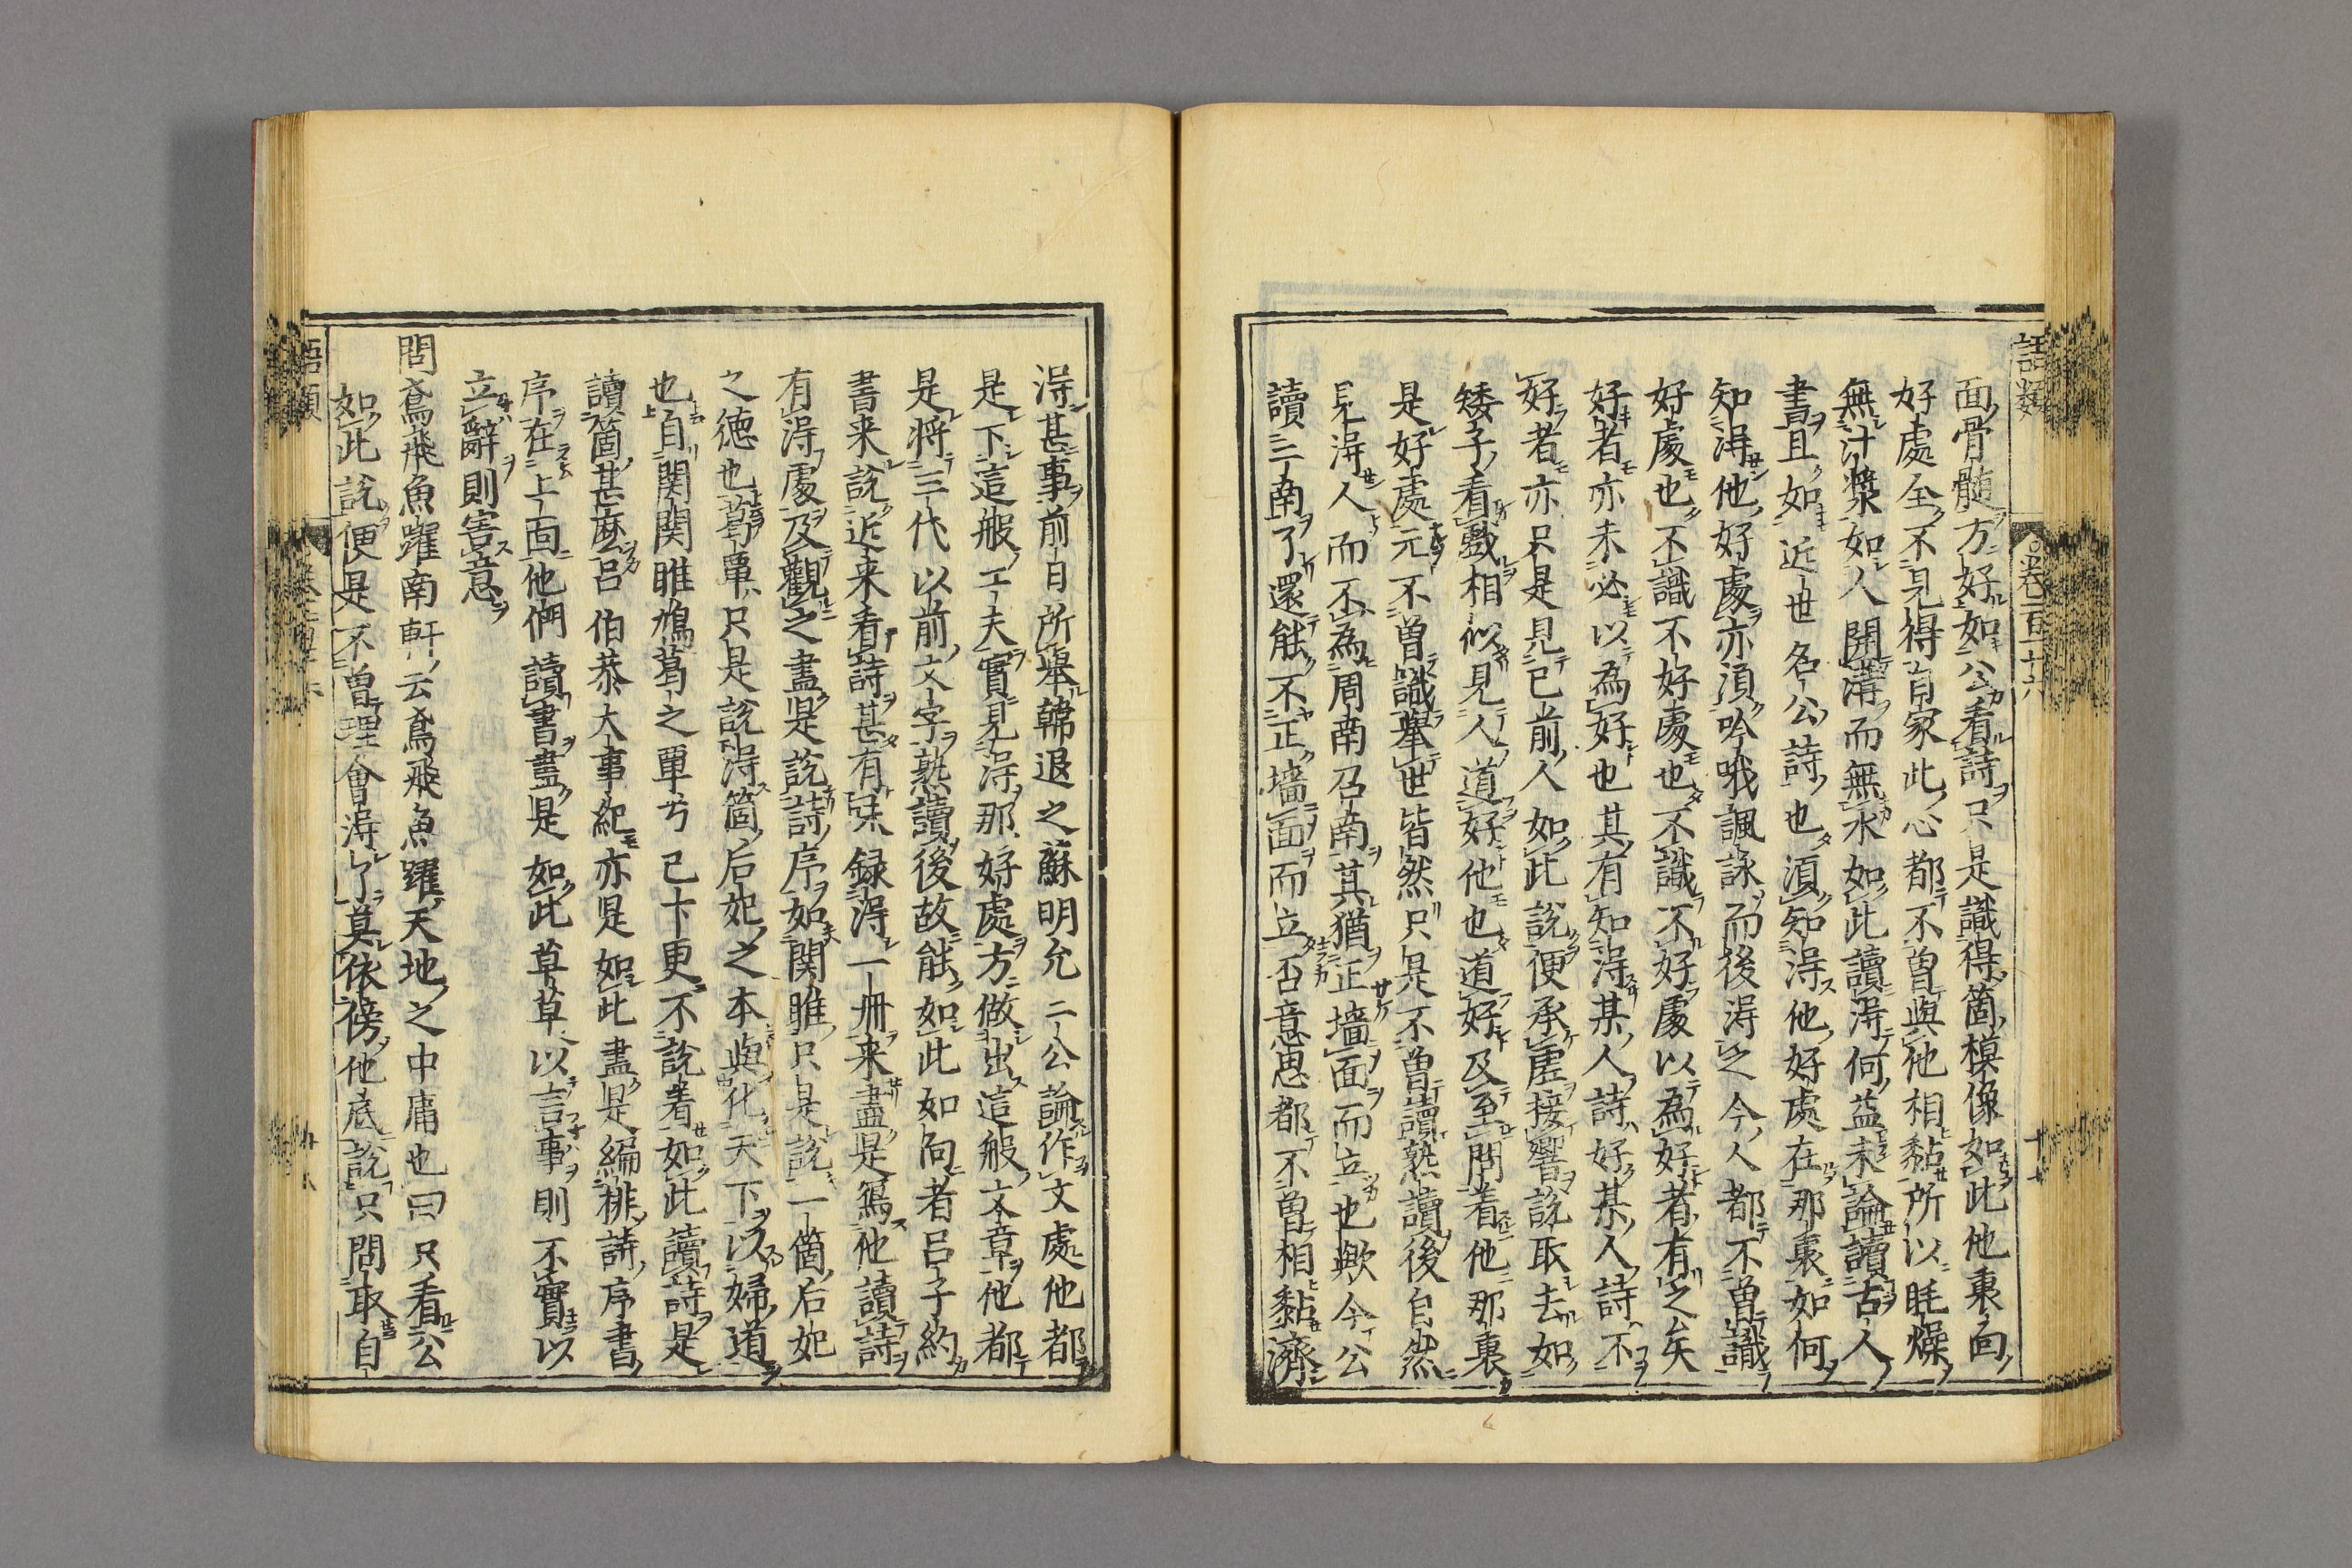 語類　卷百十六　十七
面骨髓方好如公看詩只是識得箇模像如此他裏面
好處全不見得自家此心都不曾與他相黏所以眊燥
無汁漿如人開溝而無水如此讀得何益未論讀古人
書且如近世名公詩也須知得他好處在那裏如何
知得他好處亦須吟哦諷詠而後得之今人都不曾識
好處也不識不好處也不識不好處以為好者有之矣
好者亦未必以為好也其有知得某人詩好某人詩不
好者亦只是見已前人如此說便承虛接響說取去如
矮子看戲相似見人道好他也道好及至問着他那裏
是好處元不曾識舉世皆然只是不曾讀熟讀後自然
見得人而不為周南召南其猶正墻面而立也歟今公
讀二南了還能不正墻面而立否意思都不曾相黏濟
得甚事前日所舉韓退之蘇明允二公論作文處他都
是下這般工夫實見得那好處方做出這般文章他都
是將三代以前文字熟讀後故能如此如向者呂子約
書来說近来看詩甚有味録得一册来盡是寫他讀詩
有得處及觀之盡是說詩序如関雎只是說一箇后妃
之徳也葛覃只是說得箇后妃之本與化天下以婦道
也自関関雎鳩葛之覃兮已下更不說着如此讀詩是
讀箇甚麼呂伯恭大事紀亦是如此盡是編排詩序書
序在上面他們讀書盡是如此草草以言事則不實以
立辭則害意
問鳶飛魚躍南軒云鳶飛魚躍天地之中庸也曰只看公
如此說便是不曾理會得了莫依傍他底說只問取自
語類